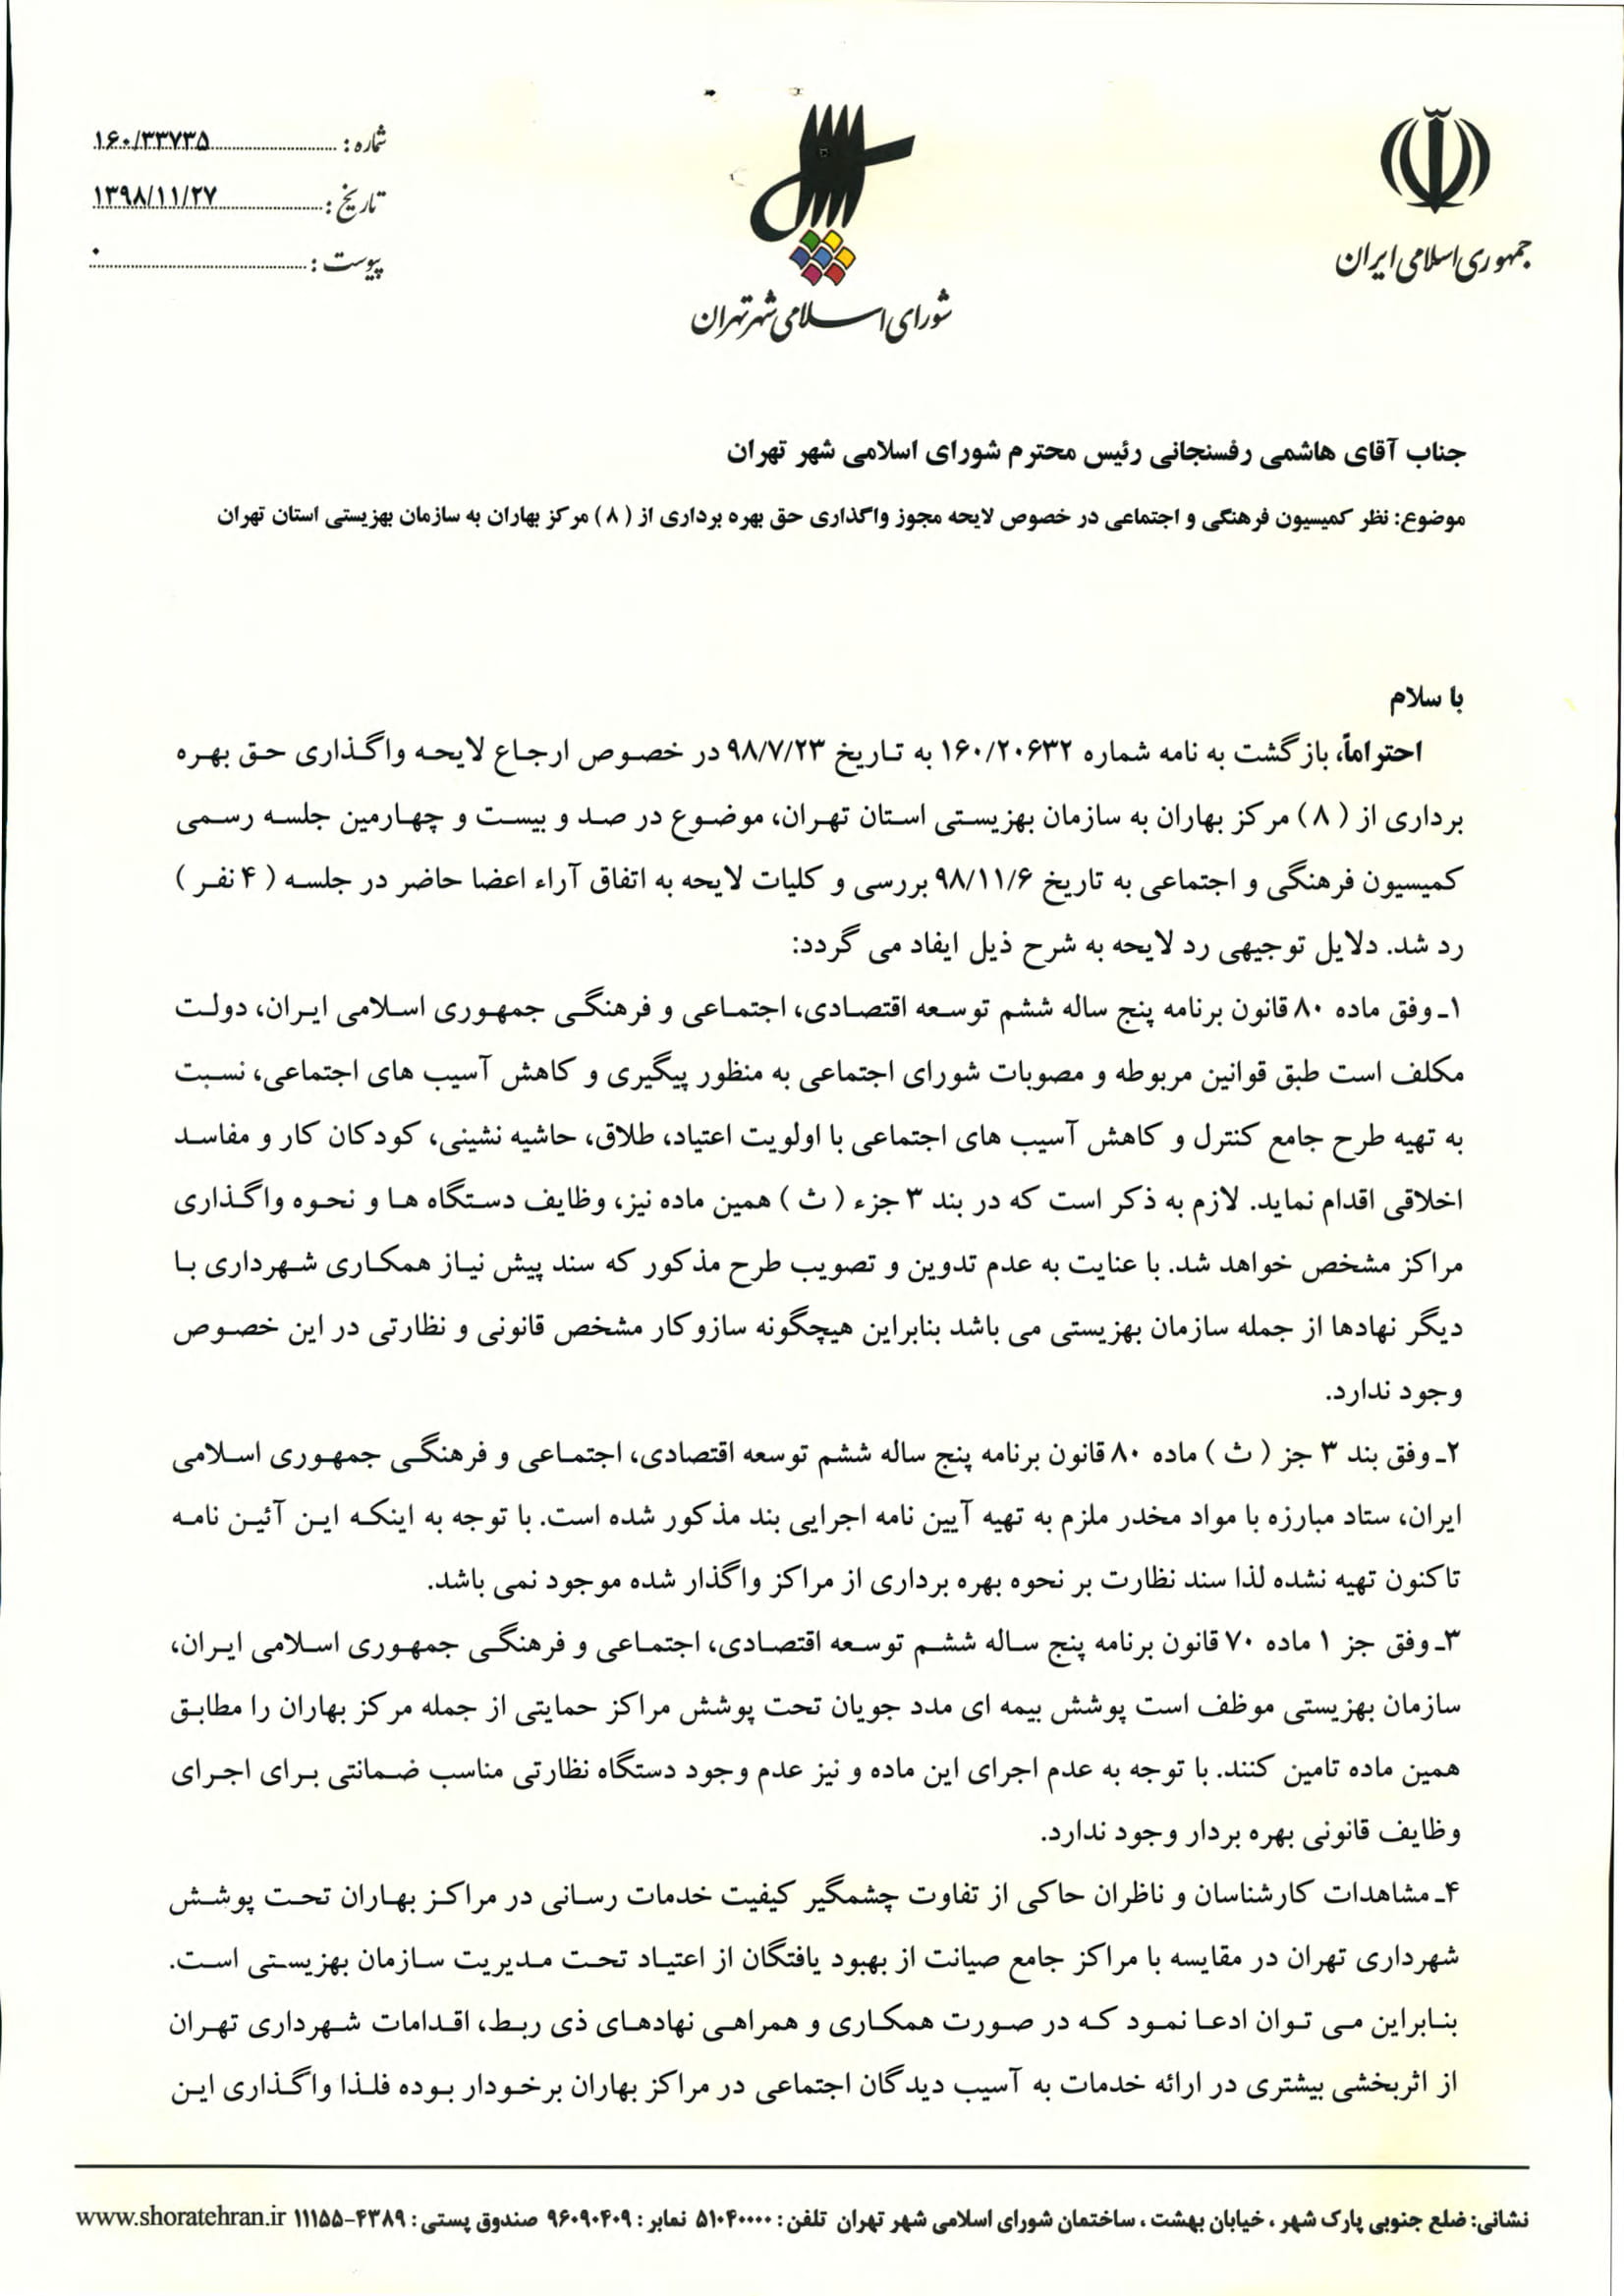 جمهوری اسلامی ایران
شورای اسلامی شهر تهران
شماره : ۱۶۰/۳۳۷۳۵
تاریخ : ۱۳۹۸/۱۱/۲۷
پیوست : ۰
جناب آقای هاشمی رفسنجانی رئیس محترم شورای اسلامی شهر تهران
موضوع: نظر کمیسیون فرهنگی و اجتماعی در خصوص لایحه مجوز واگذاری حق بهره برداری از ( ۸ ) مرکز بهاران به سازمان بهزیستی استان تهران
با سلام
احتراماً، بازگشت به نامه شماره ۱۶۰/۲۰۶۳۲ به تاریخ ۹۸/۷/۲۳ در خصوص ارجاع لایحه واگذاری حق بهره
برداری از ( ۸ ) مرکز بهاران به سازمان بهزیستی استان تهران، موضوع در صد و بیست و چهارمین جلسه رسمی
کمیسیون فرهنگی و اجتماعی به تاریخ ۹۸/۱۱/۶ بررسی و کلیات لایحه به اتفاق آراء اعضا حاضر در جلسه ( ۴ نفر )
رد شد. دلایل توجیهی رد لایحه به شرح ذیل ایفاد می گردد:
۱ـ وفق ماده ۸۰ قانون برنامه پنج ساله ششم توسعه اقتصادی، اجتماعی و فرهنگی جمهوری اسلامی ایران، دولت
مکلف است طبق قوانین مربوطه و مصوبات شورای اجتماعی به منظور پیگیری و کاهش آسیب های اجتماعی، نسبت
به تهیه طرح جامع کنترل و کاهش آسیب های اجتماعی با اولویت اعتیاد، طلاق، حاشیه نشینی، کودکان کار و مفاسد
اخلاقی اقدام نماید. لازم به ذکر است که در بند ۳ جزء ( ث ) همین ماده نیز، وظایف دستگاه ها و نحوه واگذاری
مراکز مشخص خواهد شد. با عنایت به عدم تدوین و تصویب طرح مذکور که سند پیش نیاز همکاری شهرداری با
دیگر نهادها از جمله سازمان بهزیستی می باشد بنابراین هیچگونه سازوکار مشخص قانونی و نظارتی در این خصوص
وجود ندارد.
۲ـ وفق بند ۳ جز ( ث ) ماده ۸۰ قانون برنامه پنج ساله ششم توسعه اقتصادی، اجتماعی و فرهنگی جمهوری اسلامی
ایران، ستاد مبارزه با مواد مخدر ملزم به تهیه آیین نامه اجرایی بند مذکور شده است. با توجه به اینکه این آئین نامه
تاکنون تهیه نشده لذا سند نظارت بر نحوه بهره برداری از مراکز واگذار شده موجود نمی باشد.
۳ـ وفق جز ۱ ماده ۷۰ قانون برنامه پنج ساله ششم توسعه اقتصادی، اجتماعی و فرهنگی جمهوری اسلامی ایران،
سازمان بهزیستی موظف است پوشش بیمه ای مدد جویان تحت پوشش مراکز حمایتی از جمله مرکز بهاران را مطابق
همین ماده تامین کنند. با توجه به عدم اجرای این ماده و نیز عدم وجود دستگاه نظارتی مناسب ضمانتی برای اجرای
وظایف قانونی بهره بردار وجود ندارد.
۴ـ مشاهدات کارشناسان و ناظران حاکی از تفاوت چشمگیر کیفیت خدمات رسانی در مراکز بهاران تحت پوشش
شهرداری تهران در مقایسه با مراکز جامع صیانت از بهبود یافتگان از اعتیاد تحت مدیریت سازمان بهزیستی است.
بنابراین می توان ادعا نمود که در صورت همکاری و همراهی نهادهای ذی ربط، اقدامات شهرداری تهران
از اثربخشی بیشتری در ارائه خدمات به آسیب دیدگان اجتماعی در مراکز بهاران برخودار بوده فلذا واگذاری این
نشانی: ضلع جنوبی پارک شهر ، خیابان بهشت ، ساختمان شورای اسلامی شهر تهران تلفن : ۵۱۰۴۰۰۰۰ نمابر : ۹۶۰۹۰۴۰۹ صندوق پستی : ۴۳۸۹-۱۱۱۵۵ www.shoratehran.ir